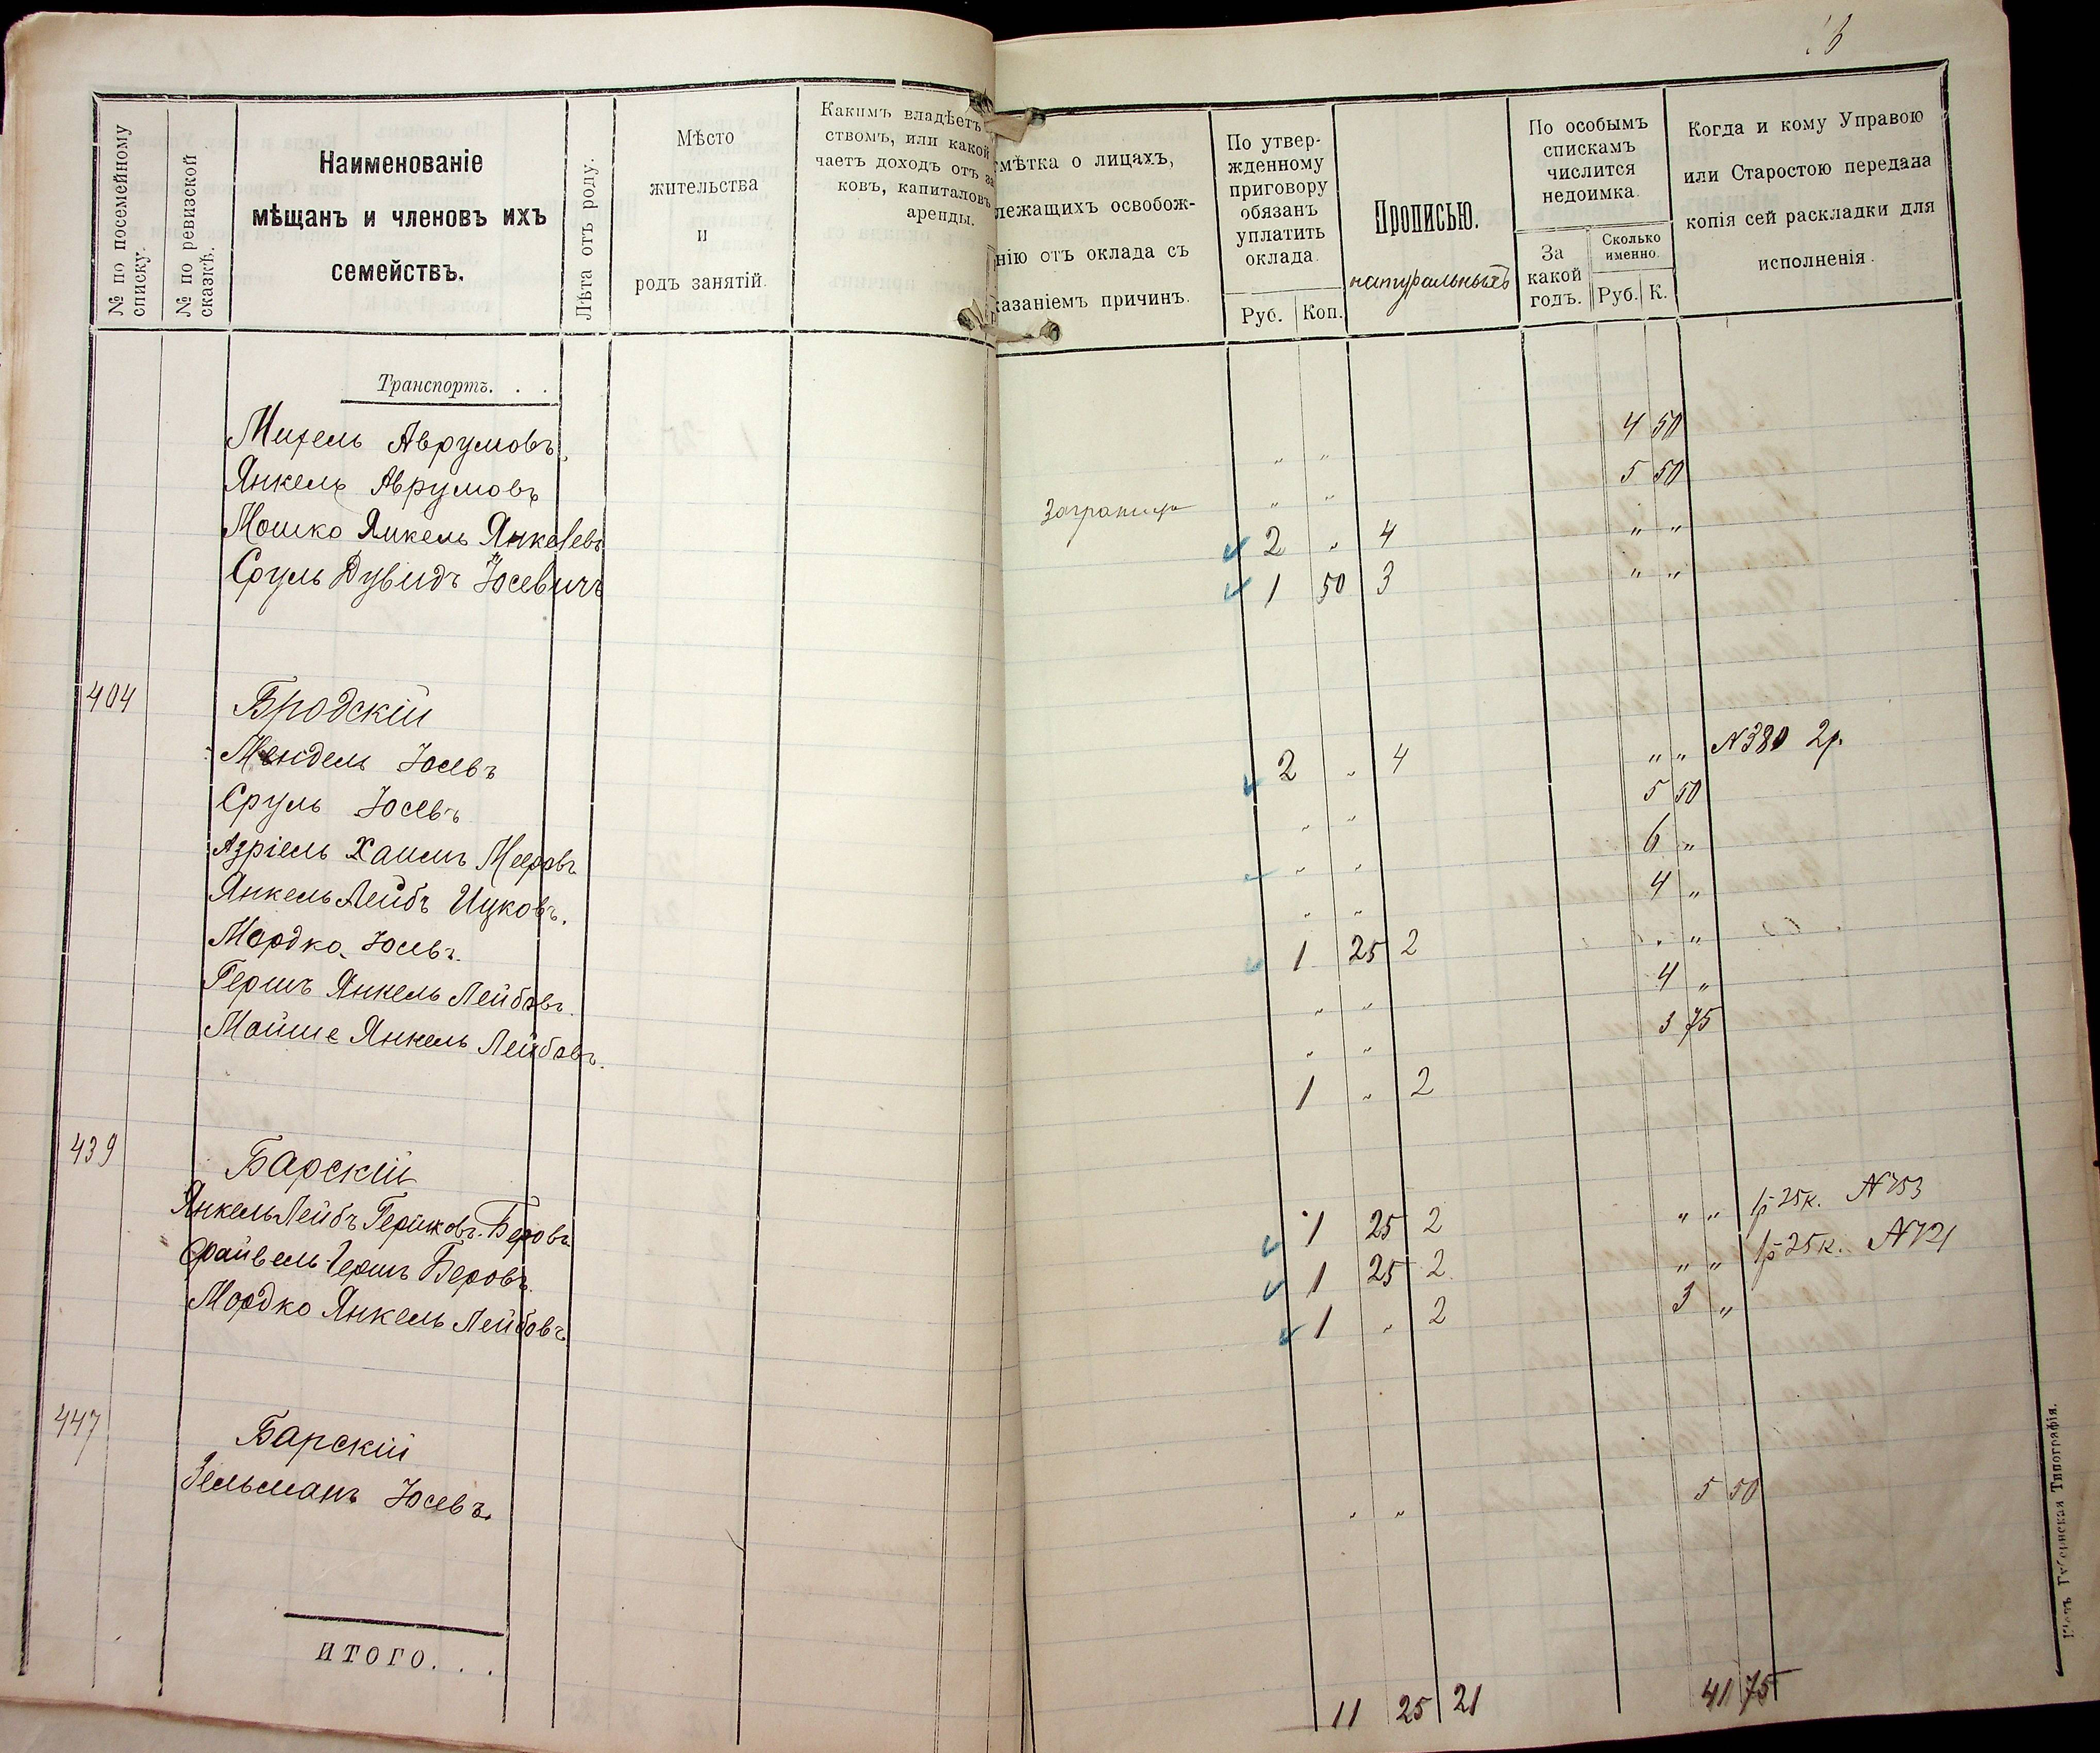 № по посемейному списку.
№ по ревизской сказкѣ.
Наименованіе
мѣщанъ и членовъ ихъ
семействъ.
Лѣта отъ роду.
Мѣсто
жительства
и
родъ занятій.
Какимъ владѣетъ
ствомъ, или какой
чаетъ доходъ отъ за
ковъ, капиталовъ
аренды.
мѣтка о лицахъ,
лежащихъ освобож-
нію отъ оклада съ
казаніемъ причинъ.
По утвер-
жденному
приговору
обязанъ
уплатить
оклада.
Руб. Коп.
Прописью.
натуральныхъ
По особымъ
спискамъ
числится
недоимка.
За
какой
годъ.
Сколько
именно.
Руб. К.
Когда и кому Управою
или Старостою передана
копія сей раскладки для
исполненія.
Транспортъ. . .
Михель Аврумовъ " " 4 50
Янкель Аврумовъ Заграницу " " 5 50
Мошко Янкель Янкелевъ 2 " 4 " "
Сруль Дувидъ Іосевичъ 1 50 3 " "
404 Бродскій
Мендель Іосевъ 2 " 4 " " № 380 2р.
Сруль Іосевъ " " 5 50
Азріель Хаимъ Мееровъ " " 6 "
Янкель Лейбъ Ицковъ. " " 4 "
Мордко Іосевъ. 1 25 2 " "
Гершъ Янкель Лейбовъ. " " 4 "
Мойше Янкель Лейбовъ. " " 3 75
1 " 2
439 Барскій
Янкель Лейбъ Беровъ 1 25 2 " " 1р 25к. № 753
Файвель Гершъ Беровъ. 1 25 2 " " 1р 25к. № 721
Мордко Янкель Лейбовъ 1 " 2 3 "
447 Барскій
Зельманъ Іосевъ. " " 5 50
ИТОГО. . .
11 25 21 41 75
Губернская Типографія.